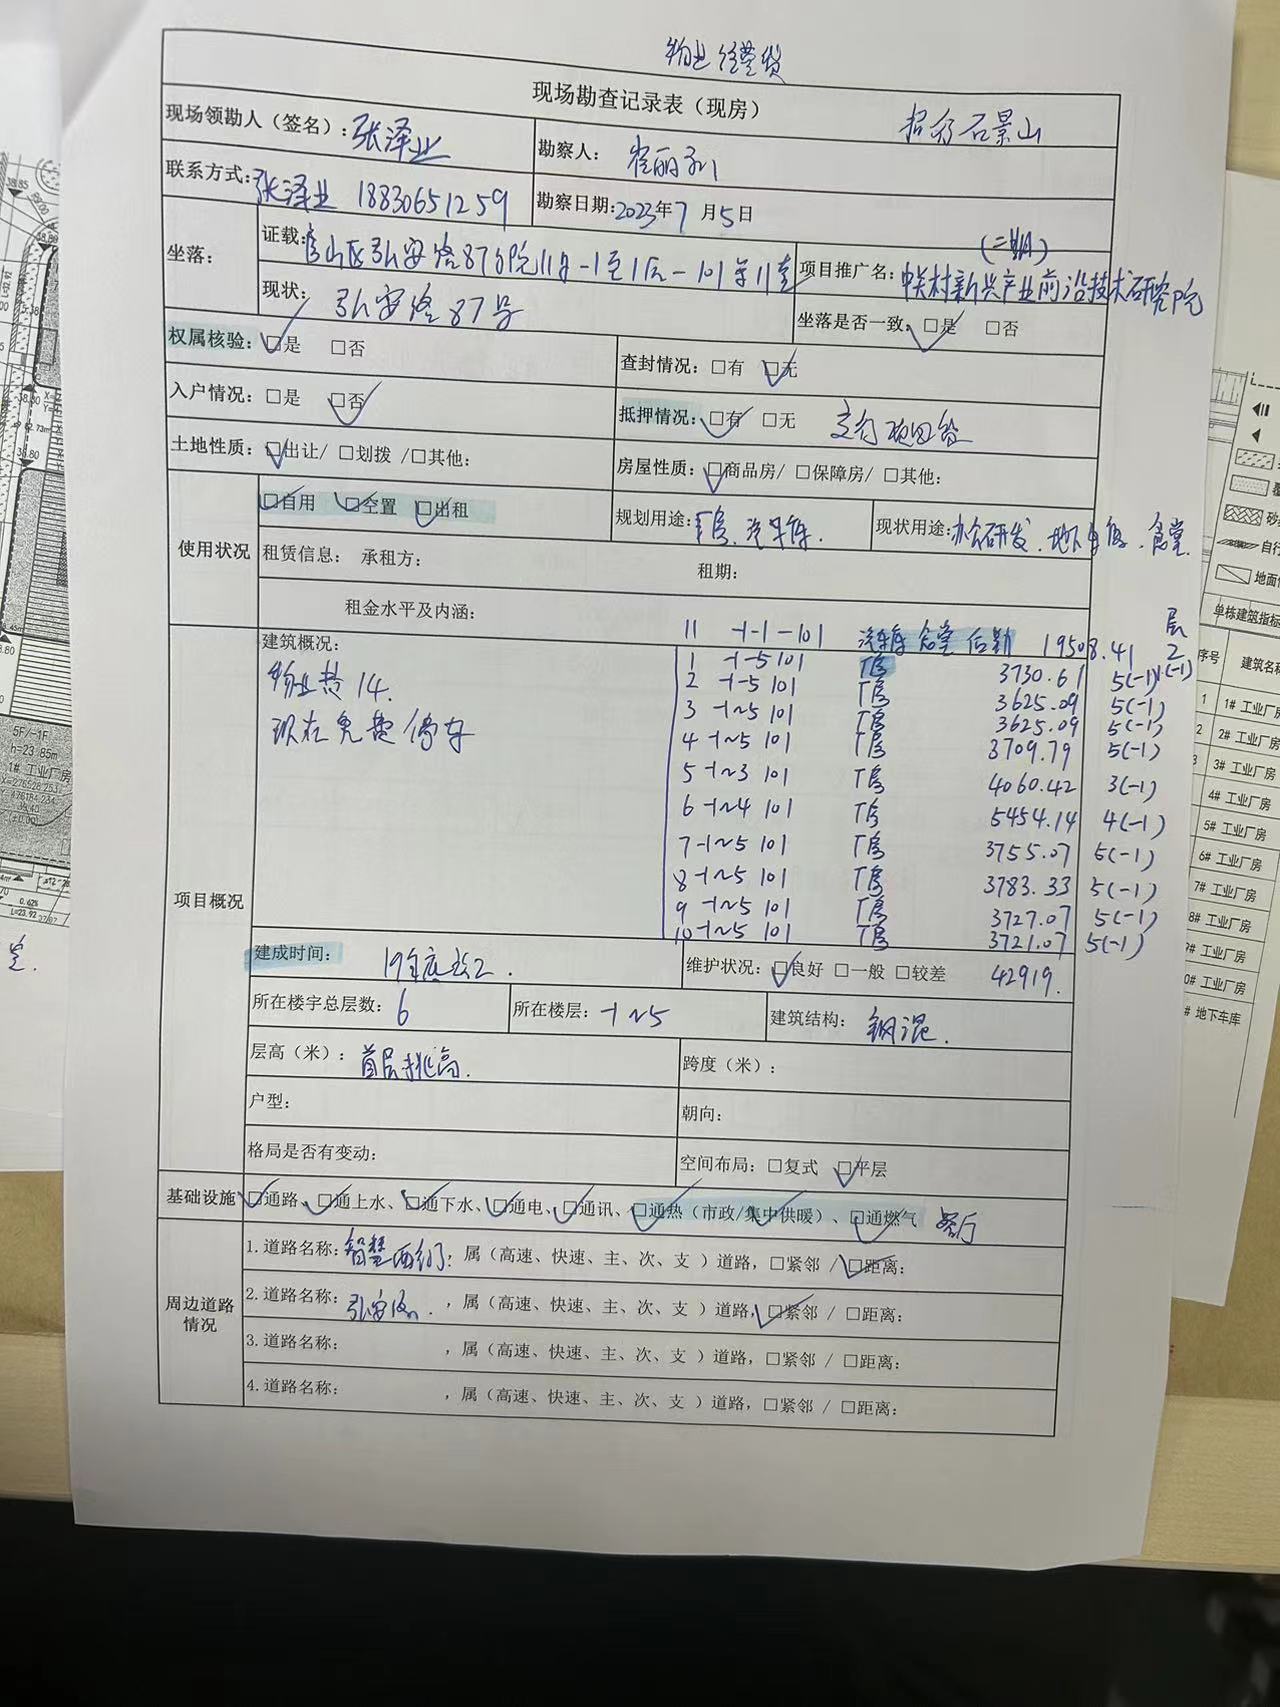 物业经营贷
现场勘查记录表（现房） 招行石景山
现场领勘人（签名）：张泽业 勘察人：崔丽
联系方式：张泽业 18830651259 勘察日期：2023年7月5日
坐落：
证载：房山区弘安路87号院11号-1至1层-101等11套 项目推广名：中关村新兴产业前沿技术研究院（二期）
现状：弘安路87号 坐落是否一致：□是 □否
权属核验：□是 □否 查封情况：□有 □无
入户情况：□是 □否 抵押情况：□有 □无
土地性质：□出让/ □划拨 /□其他： 房屋性质：□商品房/ □保障房/ □其他：
使用状况
□自用 □空置 □出租 规划用途：厂房、汽车库. 现状用途：办公研发、地下车库、食堂.
租赁信息： 承租方： 租期：
租金水平及内涵：
项目概况
建筑概况： 层
11 -1-1-101 汽车库 食堂 19508.41 2
物业共14.
现在免费停车
1 -1-5 101 厂房 3730.61 5(-1)
2 -1-5 101 厂房 3625.09 5(-1)
3 -1~5 101 厂房 3625.09 5(-1)
4 -1~5 101 厂房 3709.79 5(-1)
5 -1~3 101 厂房 4060.42 3(-1)
6 -1~4 101 厂房 5454.14 4(-1)
7 -1~5 101 厂房 3755.07 5(-1)
8 -1~5 101 厂房 3783.33 5(-1)
9 -1~5 101 厂房 3727.07 5(-1)
10 -1~5 101 厂房 3721.07 5(-1)
建成时间： 19年底竣工. 维护状况：□良好 □一般 □较差 42919.
所在楼宇总层数：6 所在楼层：-1~5 建筑结构：钢混.
层高（米）：首层挑高. 跨度（米）：
户型： 朝向：
格局是否有变动： 空间布局：□复式 □平层
基础设施 □通路、□通上水、□通下水、□通电、□通讯、□通热（市政/集中供暖）、□通燃气 餐厅
周边道路情况
1.道路名称：智慧，属（高速、快速、主、次、支 ）道路，□紧邻 / □距离：
2.道路名称：弘安路.，属（高速、快速、主、次、支 ）道路，□紧邻 / □距离：
3.道路名称： ，属（高速、快速、主、次、支 ）道路，□紧邻 / □距离：
4.道路名称： ，属（高速、快速、主、次、支 ）道路，□紧邻 / □距离：
5F/-1F
h=23.85m
1# 工业厂房
单栋建筑指标
序号 建筑名称
1 1# 工业厂房
2 2# 工业厂房
3 3# 工业厂房
4# 工业厂房
5# 工业厂房
6# 工业厂房
7# 工业厂房
8# 工业厂房
9# 工业厂房
0# 工业厂房
# 地下车库